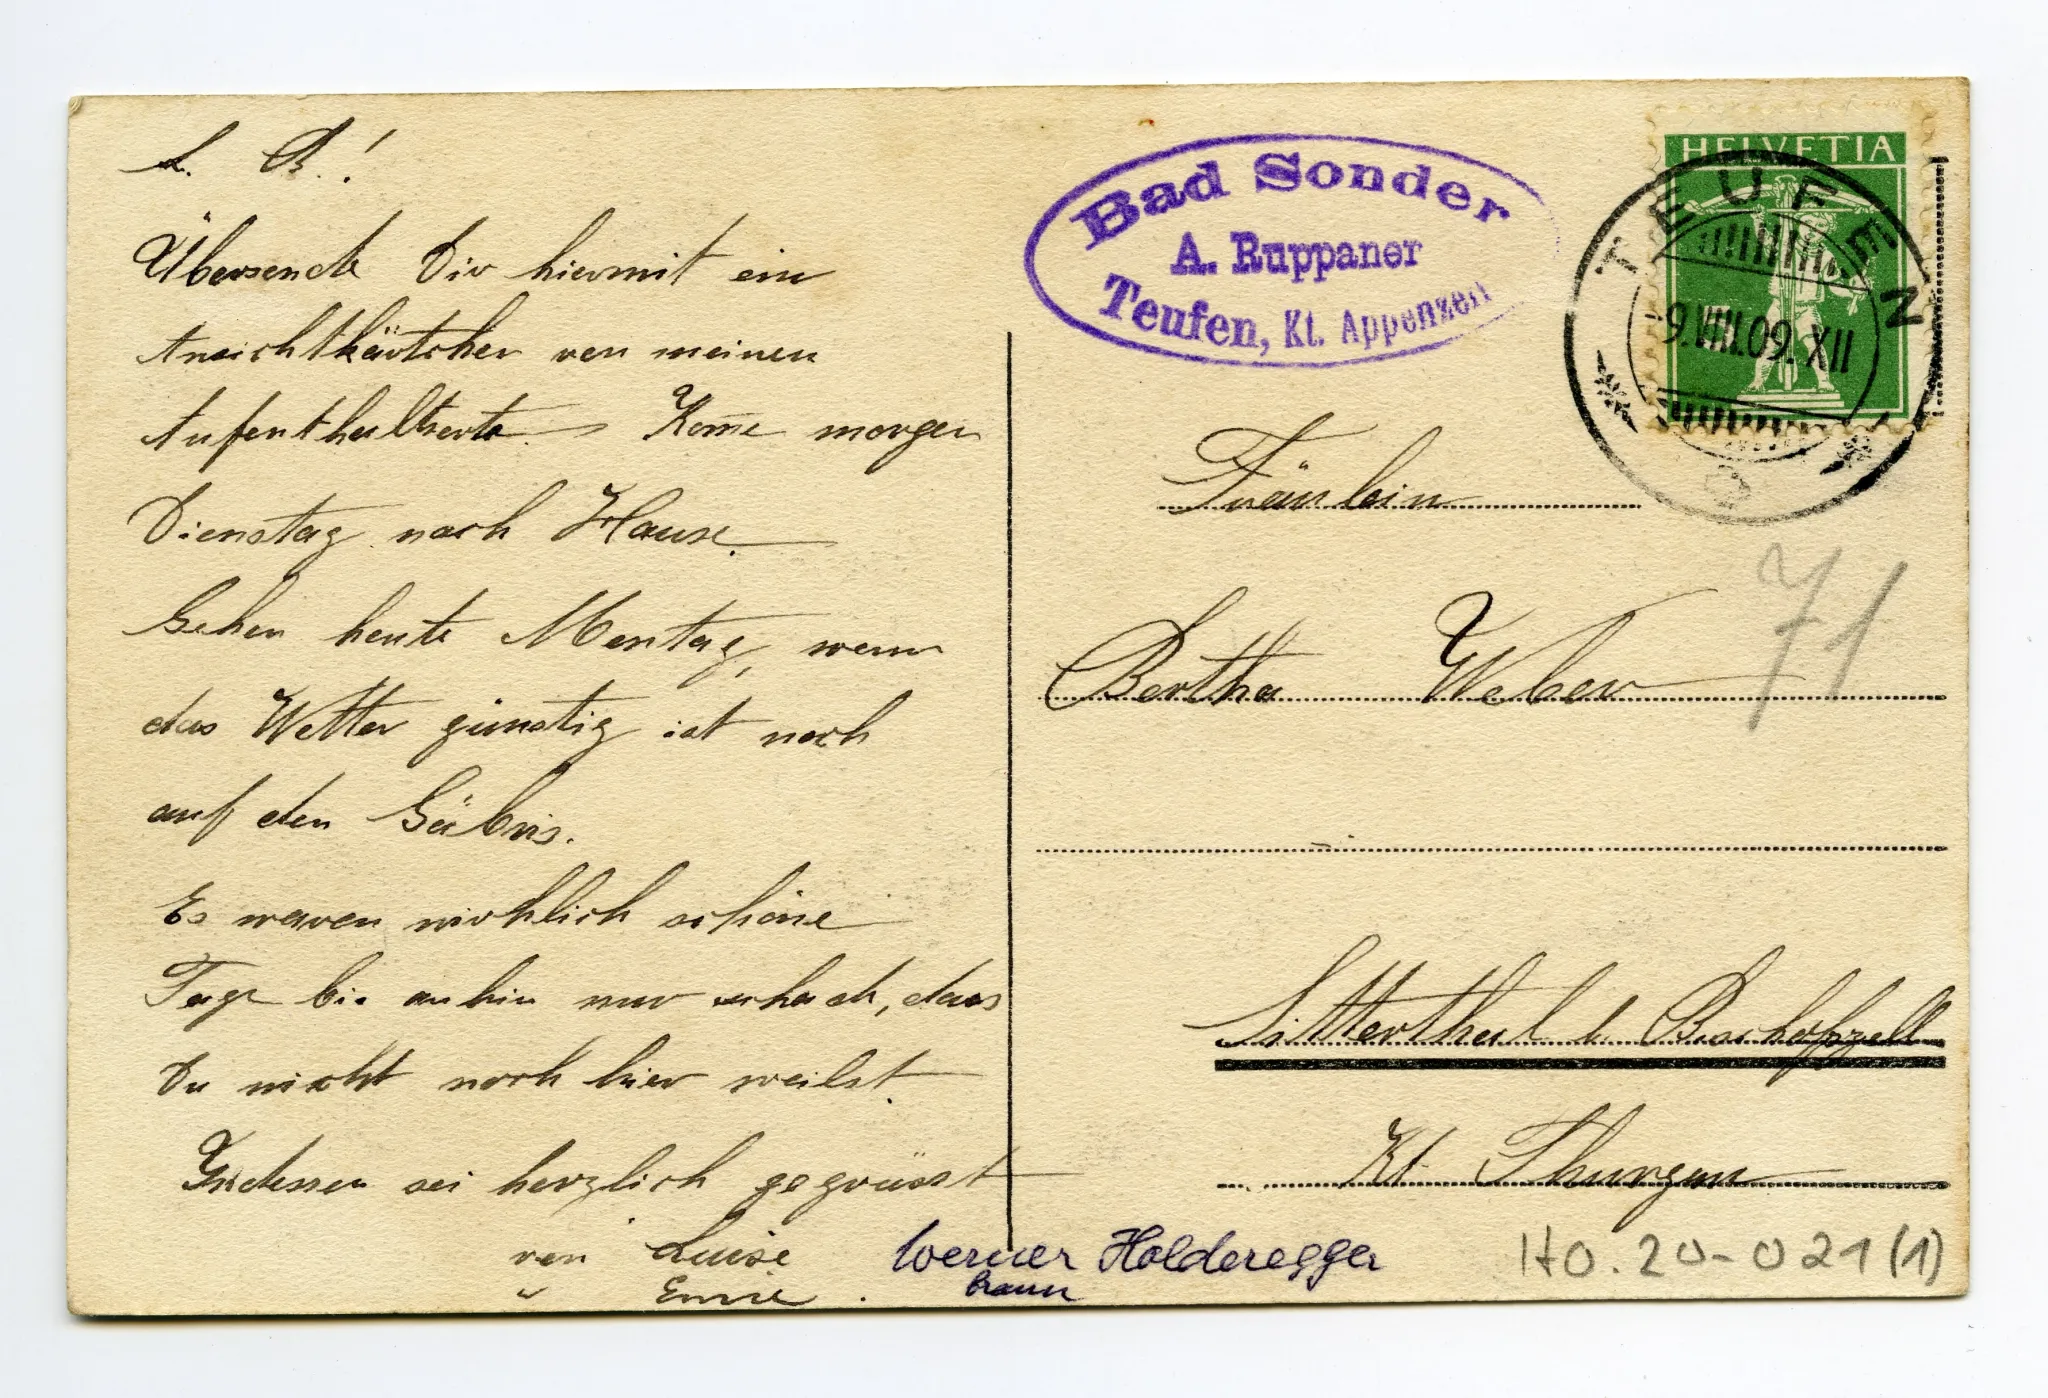 L. B.!
Übersende Dir hiermit ein
Ansichtkärtchen von meinen
Aufenthaltsorte. Kom̅e morgen
Dienstag nach Hause.
Gehen heute Montag, wenn
das Wetter günstig ist noch
auf den Gäbris.
Es waren wirklich schöne
Tage bis anhin nur schade, dass
Du nicht noch hier weilst.
Indessen sei herzlich gegrüsst
von Luise
" Emmie.
Werner Holderegger
braun
Bad Sonder
A. Ruppaner
Teufen, Kt. Appenzell
HELVETIA
TEUFEN
9.VIII.09. XII
Fräulein
Bertha Weber
71
Sitterthal b. Bischofszell
Kt. Thurgau
HO.20-021(1)